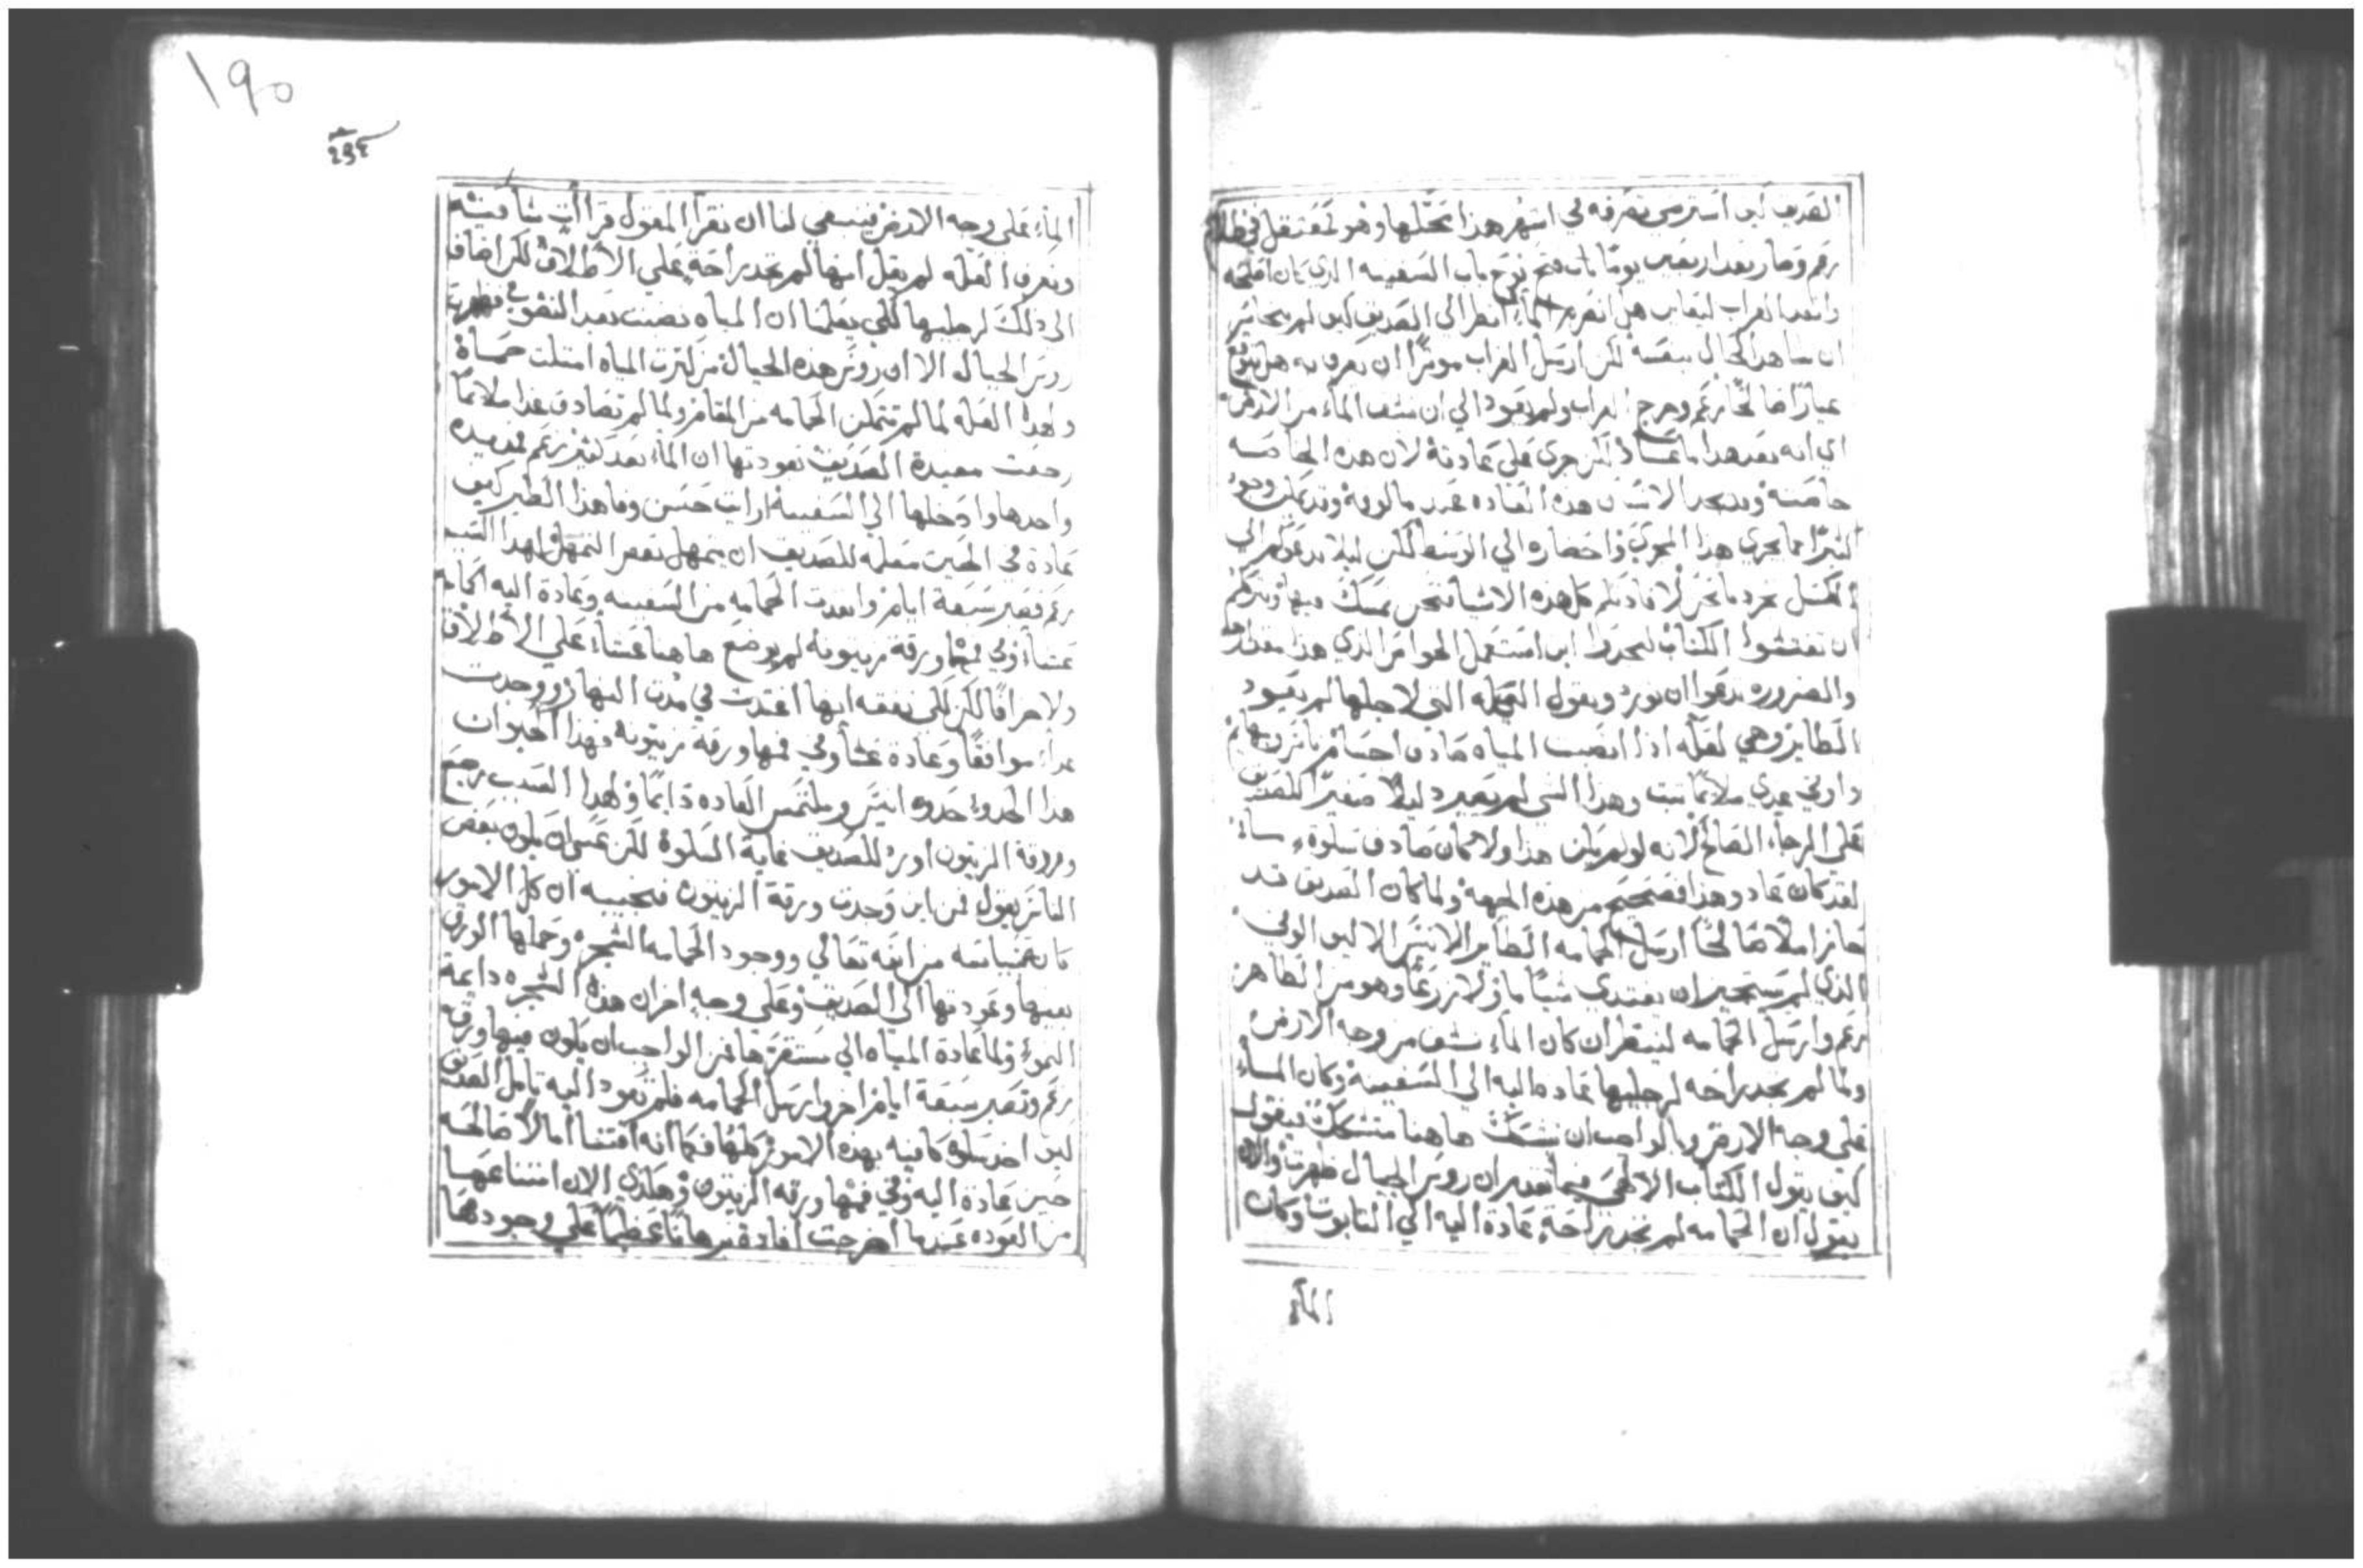 الصديق كيف استرسى تصرفه في اشهر هذا مبلغها وهو معتقل في ظلام
زعم وصار بعد اربعين يومًا فتح نوح باب السفينه الذي كان اصلحه
وانفد الغراب ليعاين هل انصرف الماء انظر الى الصديق كيف لم يتجاسر
ان يشاهد الحال بنفسه لكن ارسل الغراب موثرًا ان يعرف به هل يتوقع
خيارًا صالحًا زعم وخرج الغراب ولم يعود الي ان نشف الماء من الارض
اي انه بعد هذا ما عاد لكن جري علي عادته لان هذه الخاصه
خاصته ويجد الانسان هذه العاده عند مالوفه
كثيرًا ما يجري هذا المجري واحضاره الي الوسط لكن ليلا ندعوكم الي
الكسل نحن لافادتكم كل هذه الاشيا فنحن نمسك عنها ونترككم
ان تفتشوا الكتاب لتجدوا اين استعمل الخواص الذي هذا مقدارها
والضروره تدعوا ان نورد ونقول العله التي لاجلها لم يعود
الطاير وهي لعله اذا انصبت المياه صادف اجسام ناس وبهايم
واوفي غدي ملائمًا ثبت وهذا الشي لم يصير دليلًا صغيرًا للصديق
علي الرجاء الصالح لانه لو لم يكن هذا ولا كان صادف سلوة ساء
لقد كان عاد وهذا فصحيح من هذه الجهه ولما كان الصديق قد
حاز املًا صالحًا ارسل الحمامه الطاير الانيس الاليف الوفي
الذي لم يستجيز ان يغتدي شيًا ما ولا زرعًا وهو من الظاهر
زعم وارسل الحمامه لينظر ان كان الماء نشف من وجه الارض
ولما لم تجد راحه لرجليها عاده اليه الي السفينه وكان الماء
علي وجه الارض وبالواجب ان نشكك هاهنا متشكك فيقول
كيف يقول الكتاب الالهي فيما تقدم ان روس الجبال ظهرت والان
يقول ان الحمامه لم تجد راحة عادة اليه الي التابوت وكان
الماء
١٩٥
الماء علي وجه الارض فينبغي لنا ان نقرأ المقول قراات شافيه
ونعرف العله لم يقل انها لم تجد راحة علي الاطلاق لكن اضاف
الي ذلك لرجليها لكي يعلمنا ان المياه نصبت بعد النضوب فظهرت
روس الجبال الا ان روس هذه الجبال من كثرت المياه امتلت حماة
ولهذا العله لما لم تتمكن الحمامه من المقام ولما لم تصادف غدا ملائمًا
رجعت مفيدة الصديق بعودتها ان الماء بعد كثير زعم فمد يده
واخدها وادخلها الي السفينه ارايت حسن وفا هذا الطير كيف
عادة في الحين معلمه للصديق ان يتمهل بعض التمهل لهذا السبب
زعم فصبر سبعة ايام وانفدت الحمامه من السفينه وعادة اليه الحمامه
عشاء وفي فمها ورقة زيتونه لم يوضع هاهنا عشاء علي الاطلاق
ولا جزافًا لكن لكي نفقه انها اغتدت في مدت النهار ووجدت
غداء موافقًا وعادة عشاء وفي فمها ورقة زيتونه فهذا الحيوان
هذا الحدو احدوه انيس وملتمس العاده دايمًا ولهذا السبب رجع
وورقة الزيتون اورد للصديق غاية السلوة لكن عسى ان يكون بعض
الناس يقول فمن اين وجدت ورقة الزيتون فنجيبه ان كل الامور
كانت بعنايته من الله تعالي ووجود الحمامه الشجره وحملها الورق
بفمها وعودتها الي الصديق وعلي وجه اخر ان هذه الشجره دايمة
النمو ولما عادة المياه الي مستقرها فمن الواجب ان يكون فيها ورق
زعم وتصبر سبعة ايام اخر وارسل الحمامه فلم تعود اليه تامل الصديق
كيف اخد سلوة كافيه بهذه الامور كلها فكما انه اقتنا امالا صالحه
حين عادة اليه وفي فمها ورقه الزيتون وهكذي الان امتناعها
من العوده عندما اخرجت افادة برهانًا عظيمًا علي وجودها